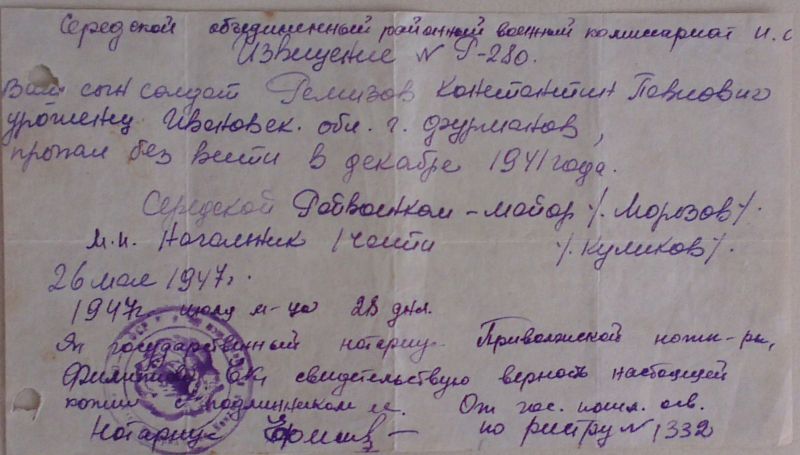 Середской объединенный районный военный комиссариат И.О
Извещение № Р-280.
Ваш сын солдат Ремизов Константин Павлович
уроженец Ивановск. обл. г. Фурманов,
пропал без вести в декабре 1941 года.
Середской Райвоенком - майор /. Морозов /.
М.п. Начальник 1 части /. Куликов /.
26 мая 1947г.
1947г. июля м-ца 28 дня.
Я, государственный нотариус Приволжской нот.
свидетельствую верность настоящей
копии с подлинником ее. От гос. пошл. осв.
Нотариус по реестру № 1332